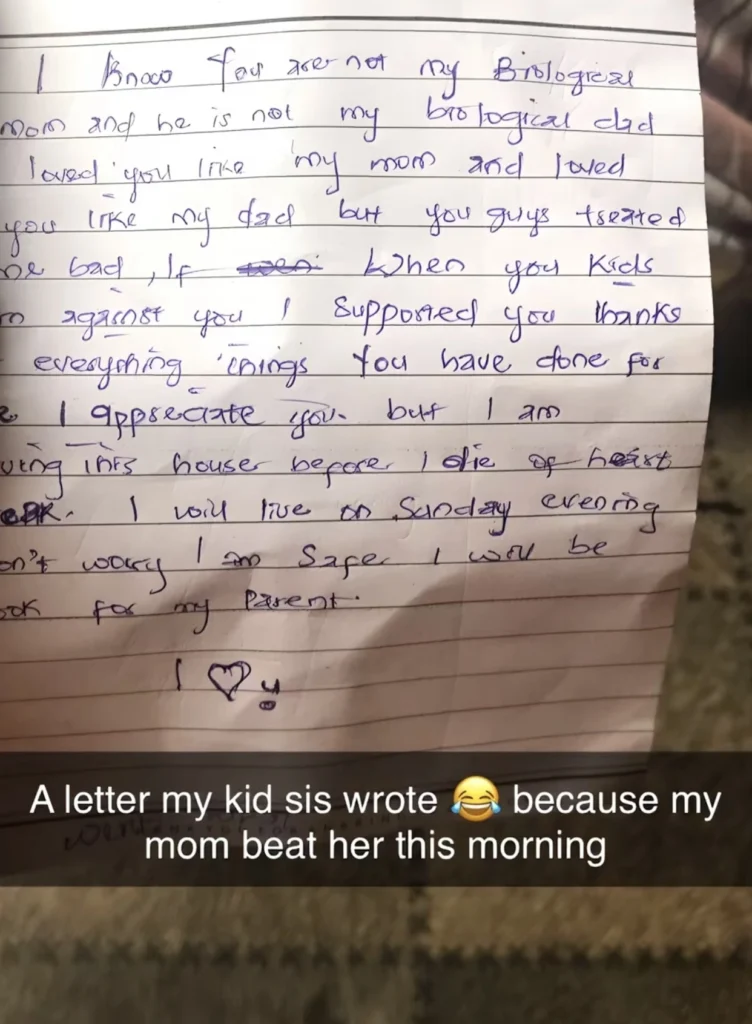 I Know You are not my Biological
mom and he is not my biological dad
loved you like my mom and loved
you like my dad but you guys treated
me bad, If When you kids
against you I supported you thanks
everything things You have done for
I appreciate you. but I am
this house before I die of heart
I will live on Sunday evening
worry I am Safe I will be
for my Parent.
I ♡ y
A letter my kid sis wrote 😂 because my
mom beat her this morning